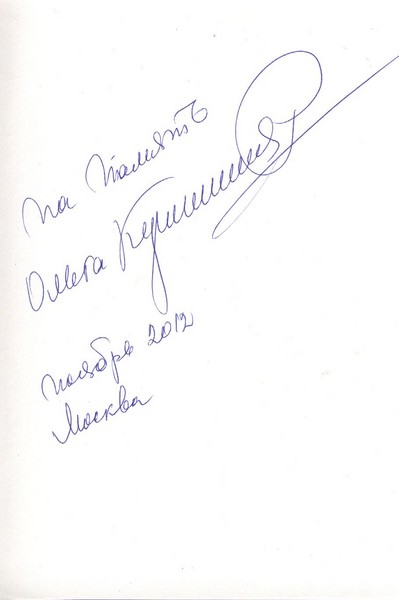 на память
Ольга
ноябрь 2012
Москва